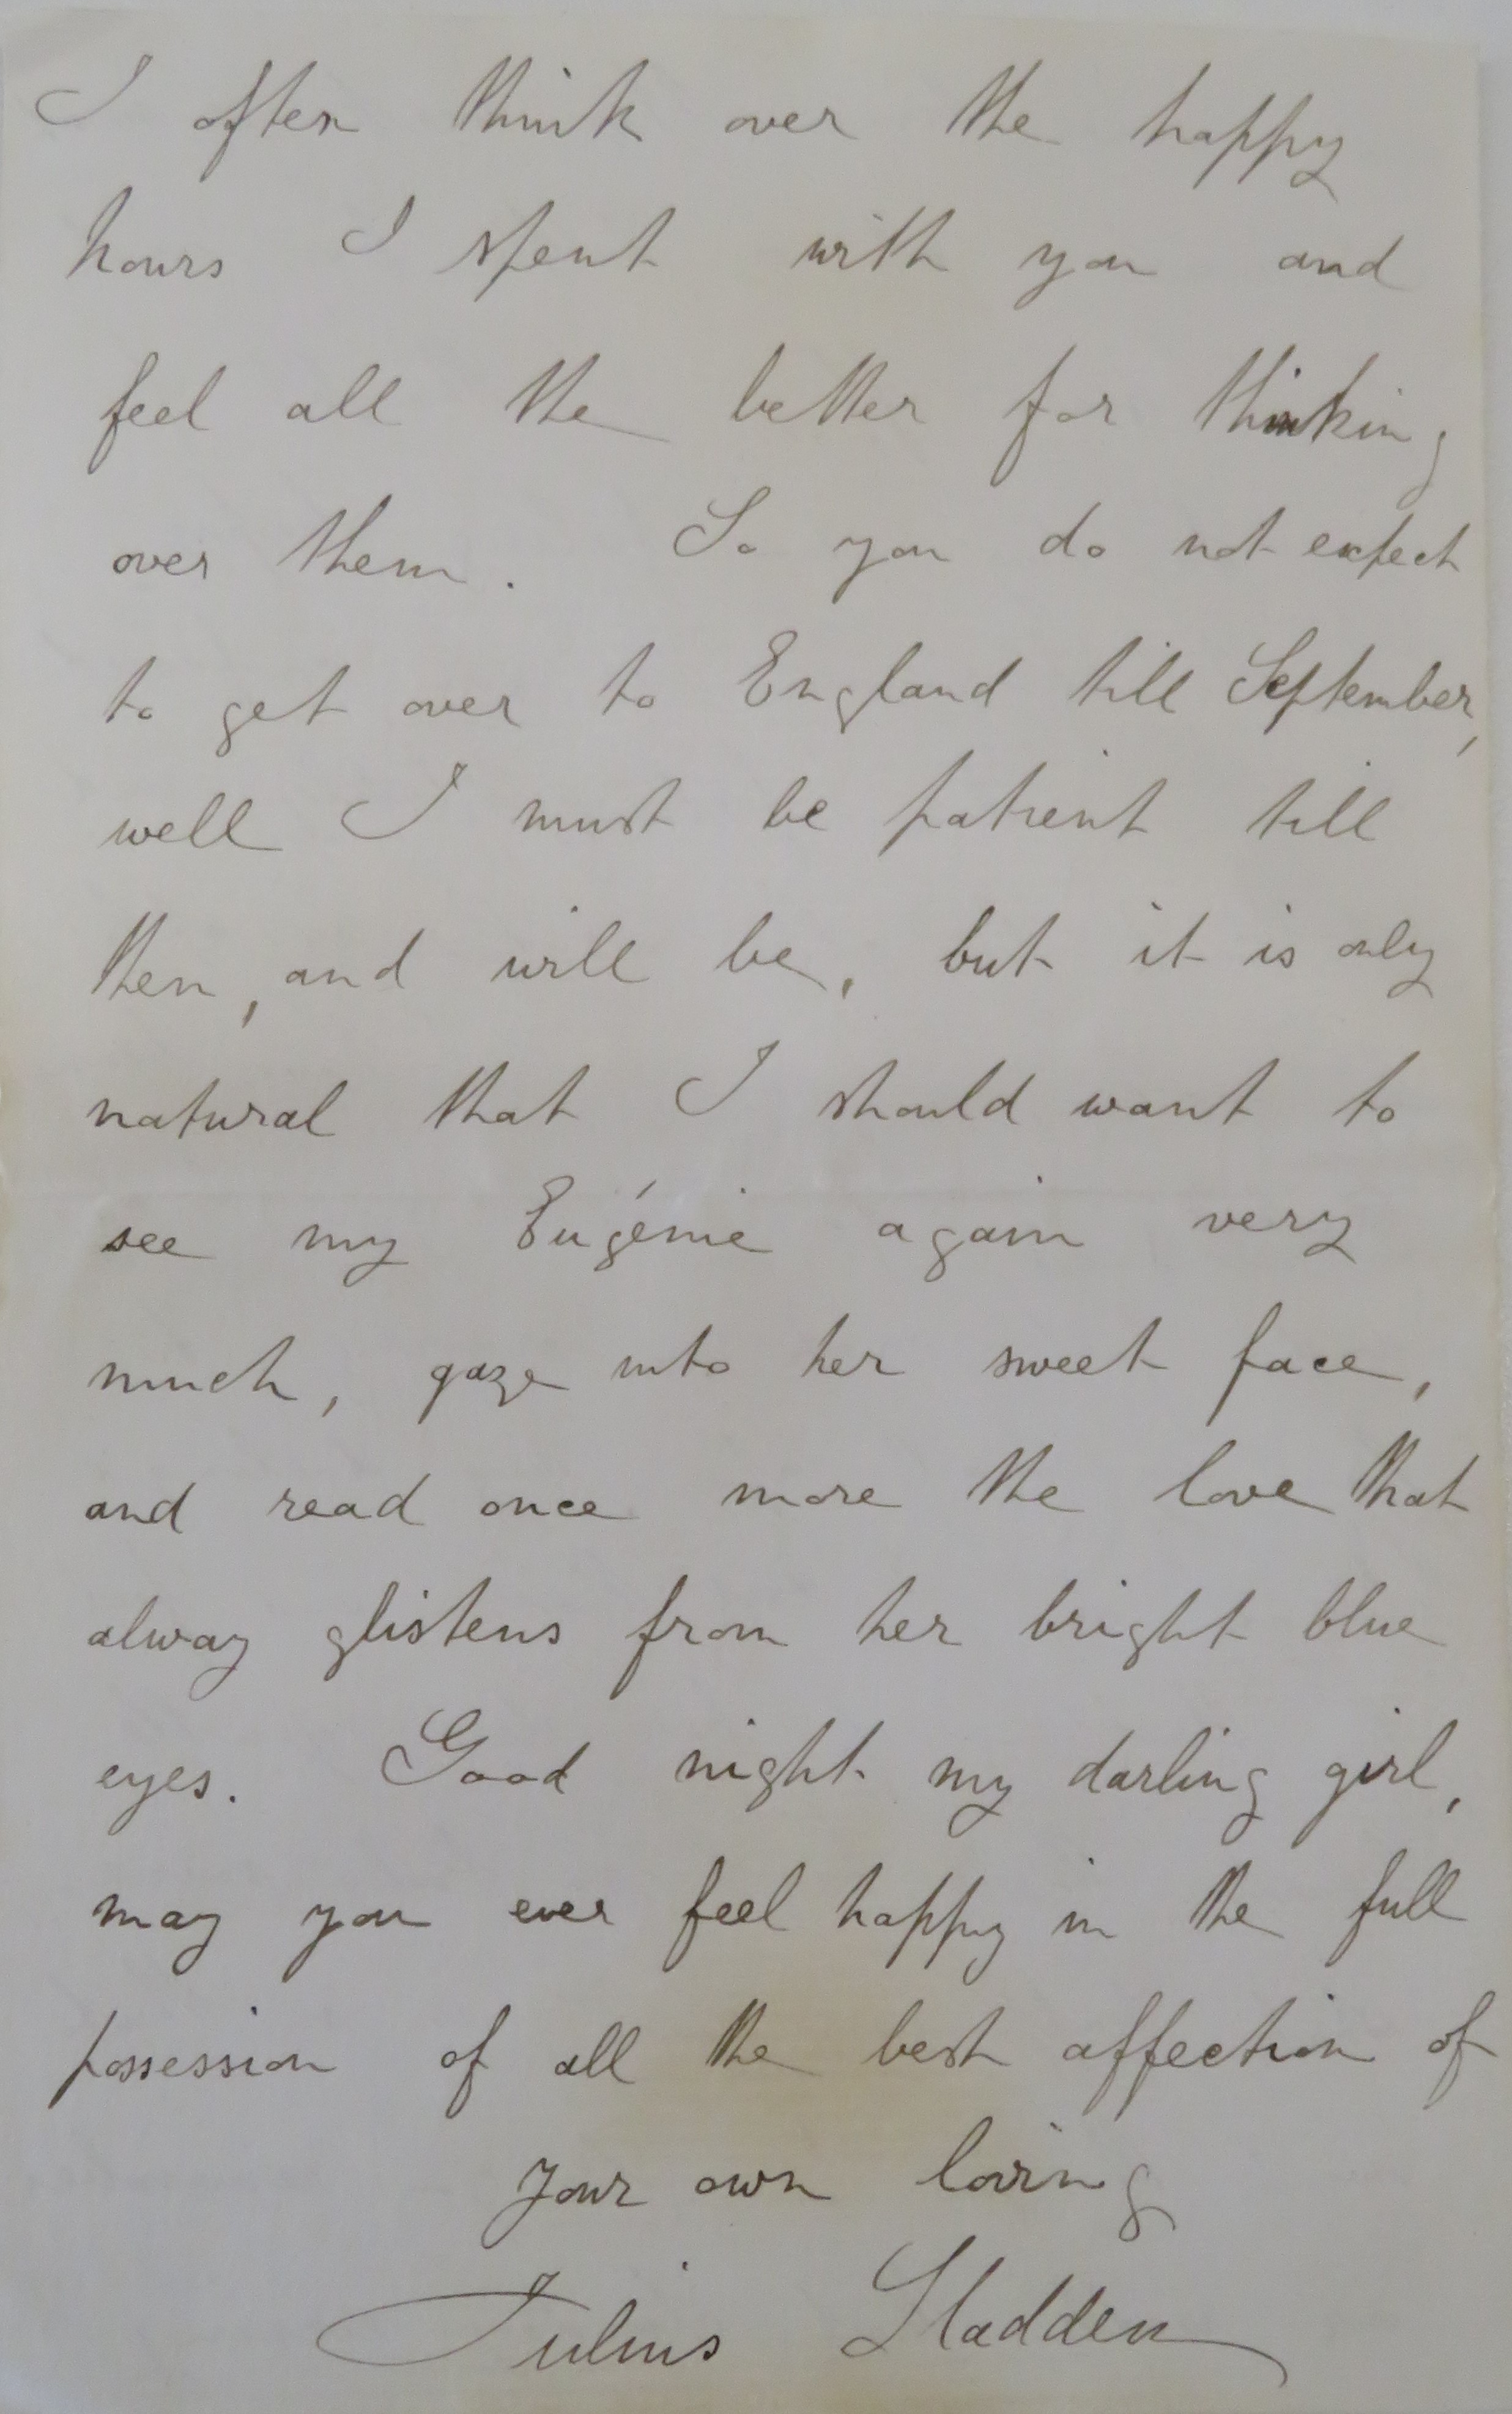 I often think over the happy
hours I spent with you and
feel all the better for thinking
over them. So you do not expect
to get over to England till September,
well I must be patient till
then, and will be, but it is only
natural that I should want to
see my Eugénie again very
much, gaze into her sweet face,
and read once more the love that
alway glistens from her bright blue
eyes. Good night my darling girl,
may you ever feel happy in the full
possession of all the best affection of
your own loving
Julius Sladden